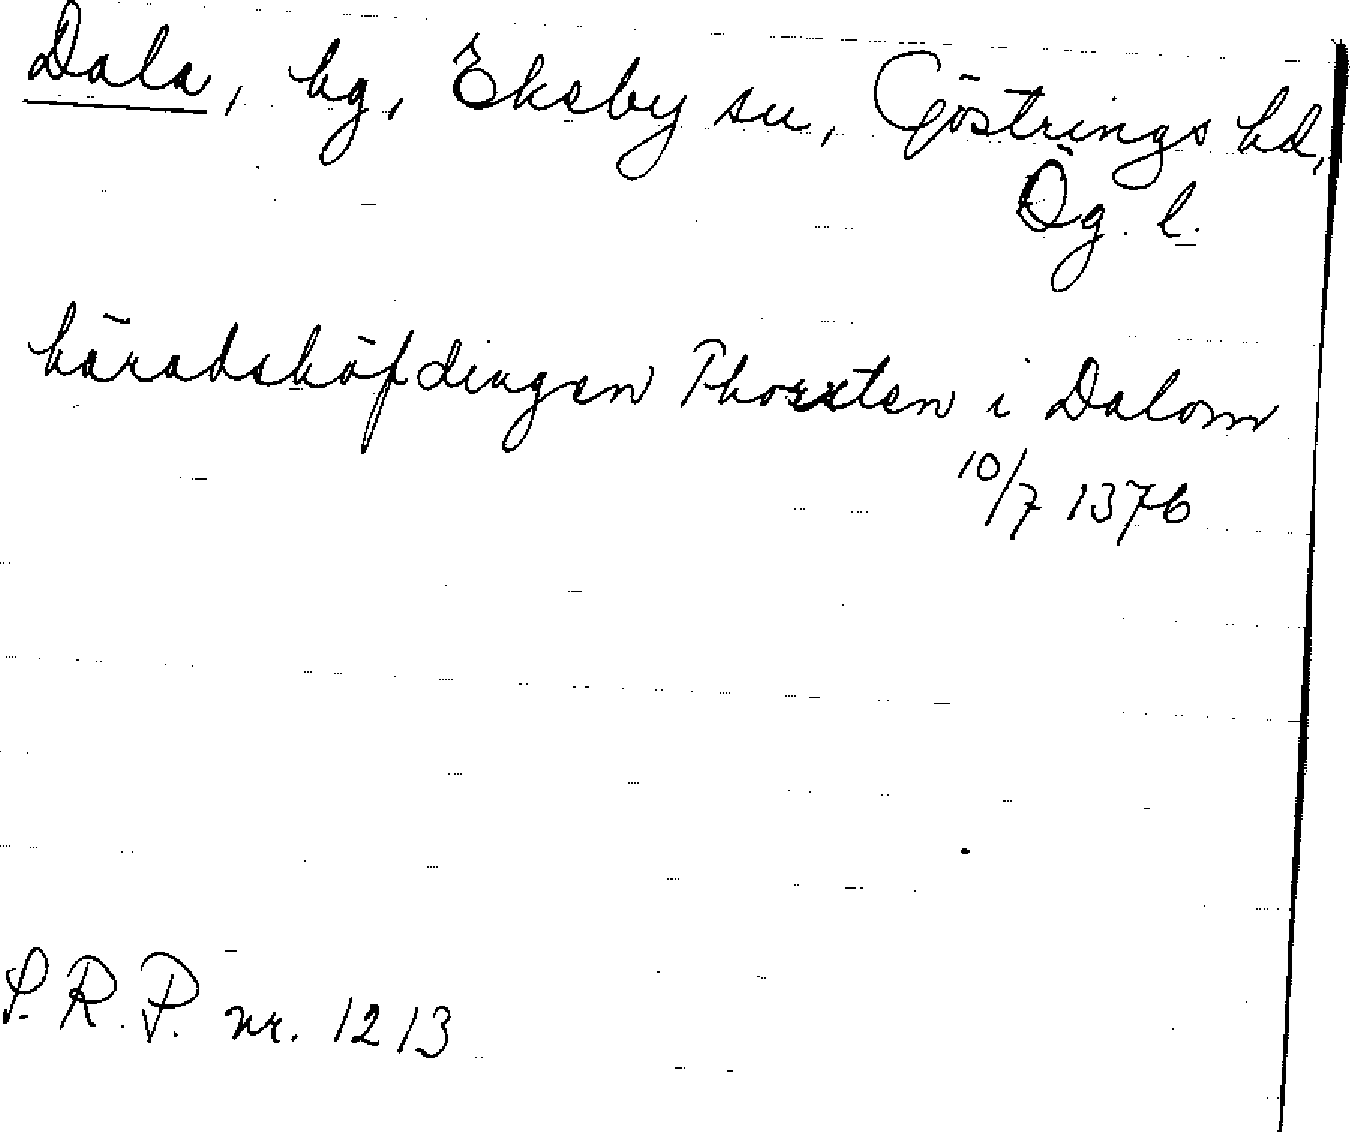 Dala, hg, Ekeby sn, Göstrings hd,
Ög. l.
häradshöfdingen Thorsten i Dalom
10/7 1376
S. R. P. nr. 1213